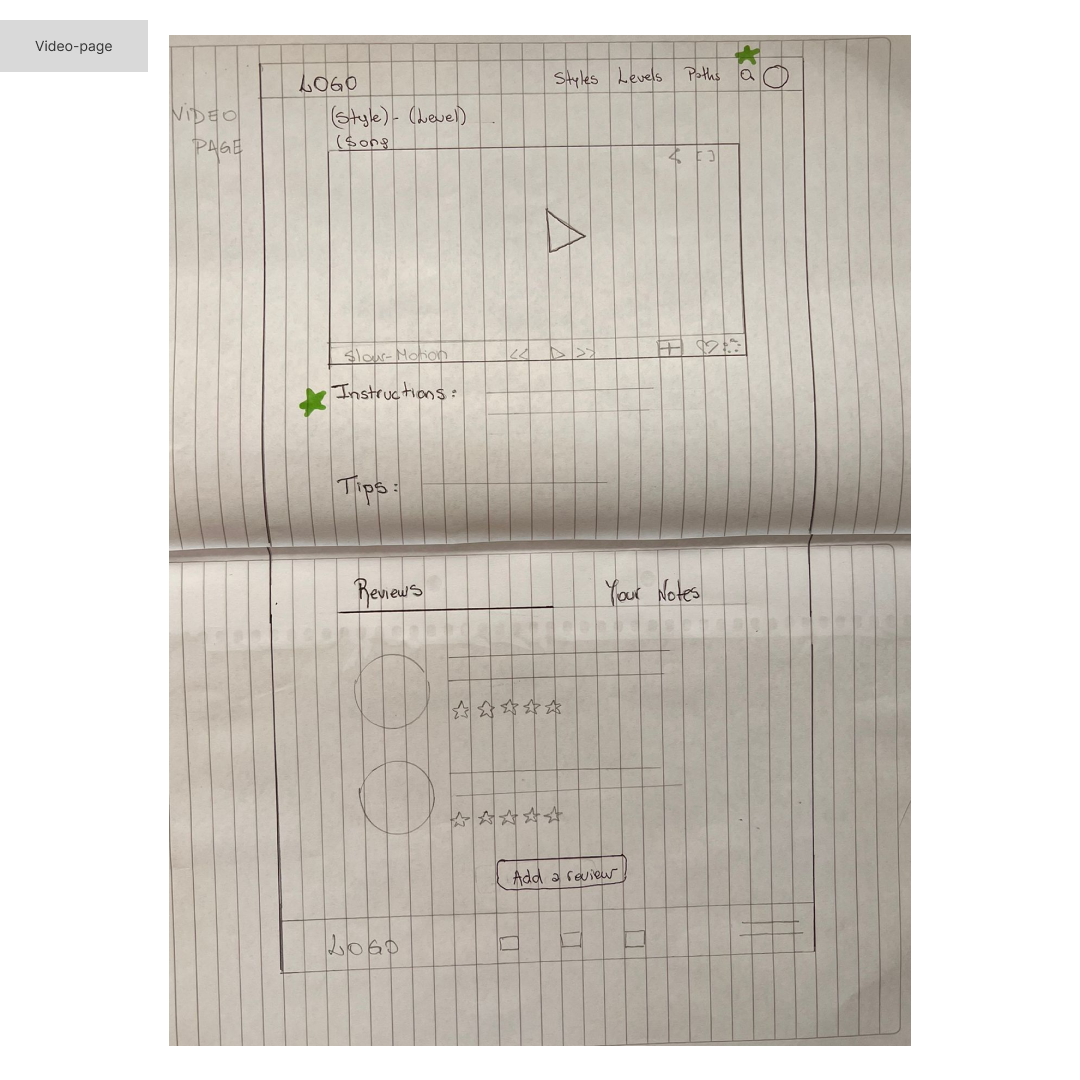 Video-page
VIDEO
PAGE
LOGO
Styles Levels Paths
(Style) - (Level)
(Song
Slow-Motion
Instructions:
Tips:
Reviews
Your Notes
Add a review
LOGO